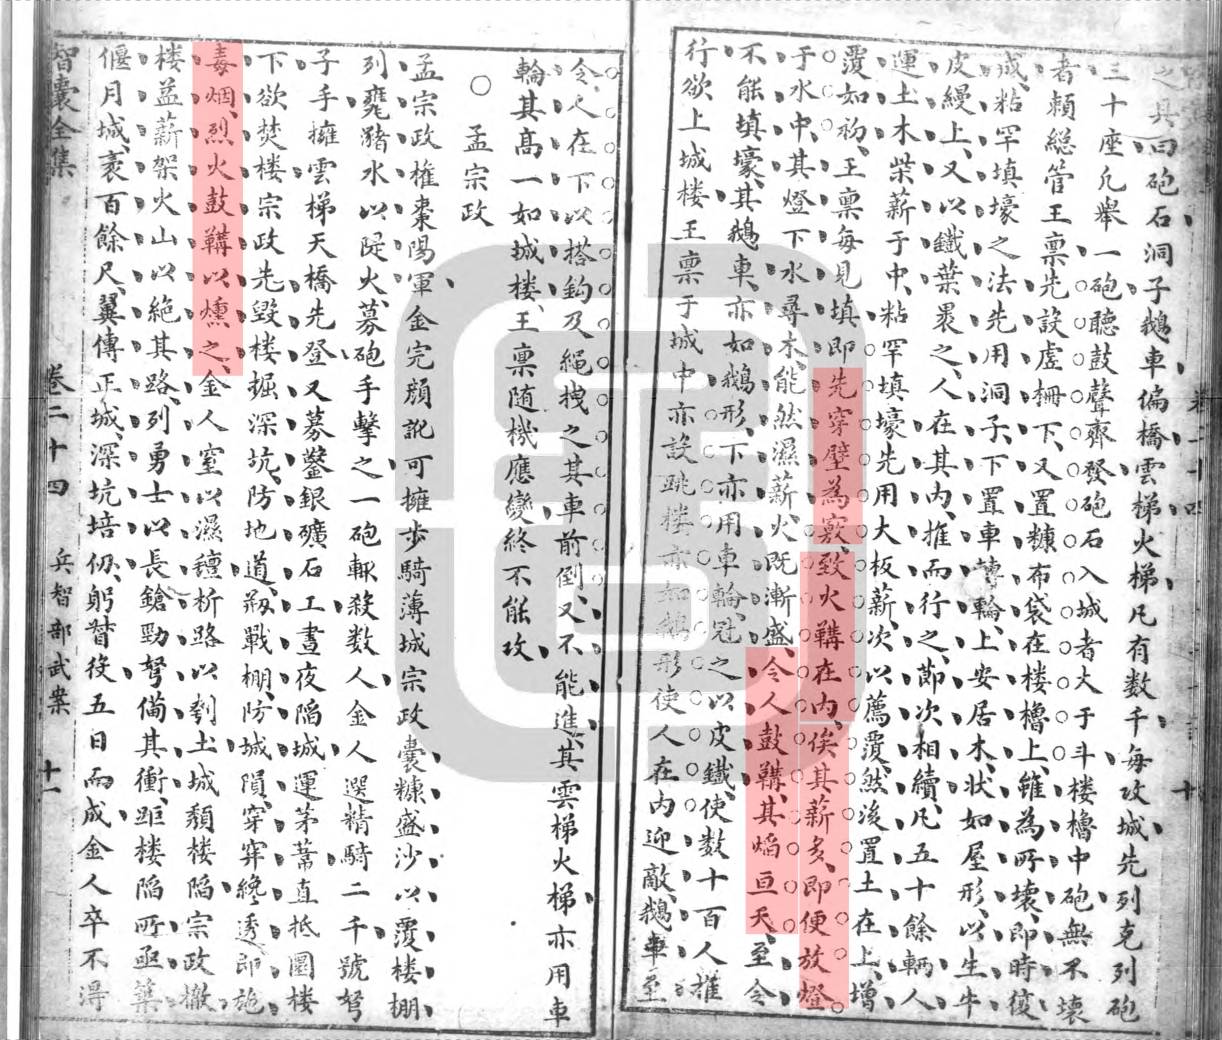 之具曰砲石洞子鵝車偏橋雲梯火梯凡有数千每攻城先列克列砲
三十座凡舉一砲聽鼓聲齊發砲石入城者大于斗楼櫓中砲無不壞
者頼総管王禀先設虚柵下又置糠布袋在楼櫓上雖為所壊即時復
成粘罕填壕之法先用洞子下置車轉輪上安居木状如屋形以生牛
皮縵上又以鐵葉褁之人在其内推而行之節次相續凡五十餘輌人
運土木柴薪于中粘罕填壕先用大板薪次以薦覆然後置土在上增
覆如初王禀每見填即先穿壁為竅致火鞲在内俟其薪多即便放燈
于水中其燈下水尋木能然濕薪火既漸盛令人鼓鞲其焰亘天至令
不能填壕其鵝車亦如鵝形下亦用車輪冠之以皮鐵使数十百人推
行欲上城楼王禀于城中亦設跳楼亦如鵝形使人在内迎敵鵝車至
令人在下以搭鈎及繩拽之其車前倒又不能進其雲梯火梯亦用車
輪其髙一如城楼王禀随機應變終不能攻
○孟宗政
孟宗政權棗陽軍金完顔訛可擁歩騎薄城宗政囊糠盛沙以覆楼棚
列甕潴水以隄火募砲手擊之一砲輙殺数人金人選精騎二千號弩
子手擁雲梯天橋先登又募鑿銀礦石工晝夜陷城運茅葦直抵圜楼
下欲焚楼宗政先毀楼掘深坑防地道剙戰棚防城隕穿穽纔透即施
毒烟烈火鼓鞲以燻之金人窒以濕氊析路以刳土城頽楼陷宗政撤
楼益薪架火山以絶其路列勇士以長鎗勁弩備其衝距楼陷所亟築
偃月城袤百餘尺翼傅正城深坑培仞躬督役五日而成金人卒不得
智囊全集 卷二十四 兵智部武案 十一